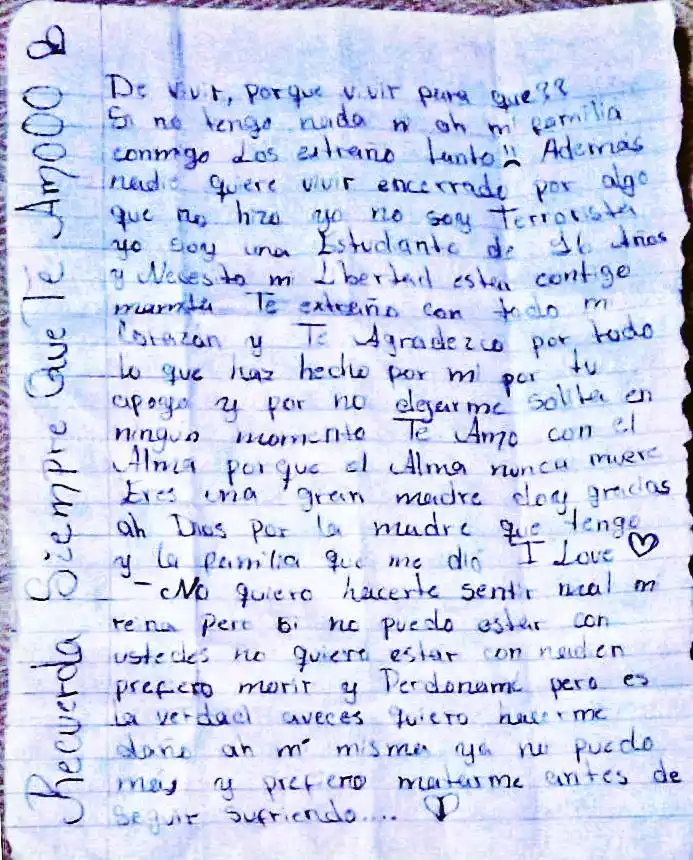 De vivir, porque vivir para que??
Si no tengo nada ni ah mi familia
conmigo Los extraño tanto!! Ademas
nadie quiere vivir encerrado por algo
que no hizo yo no soy Terrorista
yo soy una Estudiante de 16 Años
y Necesito mi Libertad estar contigo
mamita Te extraño con todo mi
Corazón y Te Agradezco por todo
lo que haz hecho por mi por tu
apoyo y por no dejarme solita en
ningun momento Te Amo con el
Alma porque el Alma nunca muere
Eres una gran madre doy gracias
ah Dios por la madre que tengo
y la familia que me dió I Love ♡
- No quiero hacerte sentir mal mi
reina pero si no puedo estar con
ustedes no quiero estar con nadien
prefiero morir y Perdoname pero es
la verdad aveces quiero hacerme
daño ah mi misma ya no puedo
más y prefiero matarme antes de
seguir sufriendo....
Recuerda Siempre Que Te Amooo